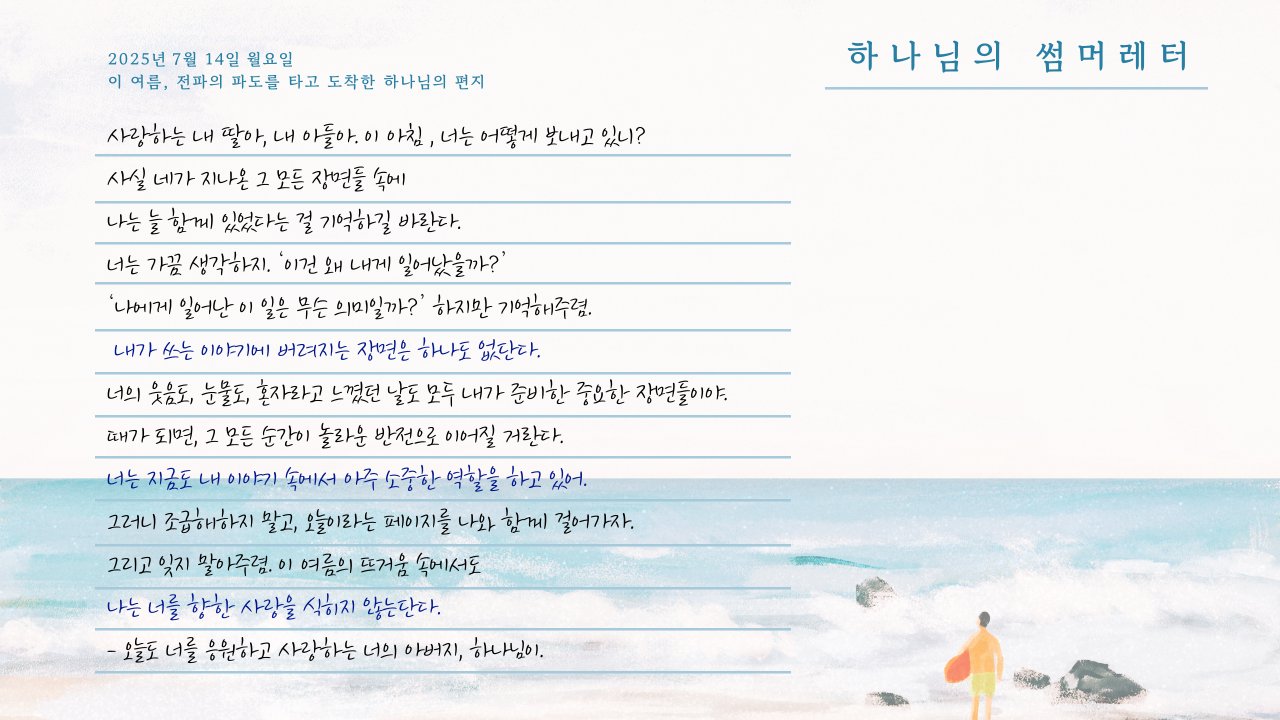 2025년 7월 14일 월요일
이 여름, 전파의 파도를 타고 도착한 하나님의 편지
하나님의 썸머레터
사랑하는 내 딸아, 내 아들아. 이 아침 , 너는 어떻게 보내고 있니?
사실 네가 지나온 그 모든 장면들 속에
나는 늘 함께 있었다는 걸 기억하길 바란다.
너는 가끔 생각하지. ‘이건 왜 내게 일어났을까?’
‘나에게 일어난 이 일은 무슨 의미일까?’ 하지만 기억해주렴.
내가 쓰는 이야기에 버려지는 장면은 하나도 없단다.
너의 웃음도, 눈물도, 혼자라고 느꼈던 날도 모두 내가 준비한 중요한 장면들이야.
때가 되면, 그 모든 순간이 놀라운 반전으로 이어질 거란다.
너는 지금도 내 이야기 속에서 아주 소중한 역할을 하고 있어.
그러니 조급해하지 말고, 오늘이라는 페이지를 나와 함께 걸어가자.
그리고 잊지 말아주렴. 이 여름의 뜨거움 속에서도
나는 너를 향한 사랑을 식히지 않는단다.
- 오늘도 너를 응원하고 사랑하는 너의 아버지, 하나님이.